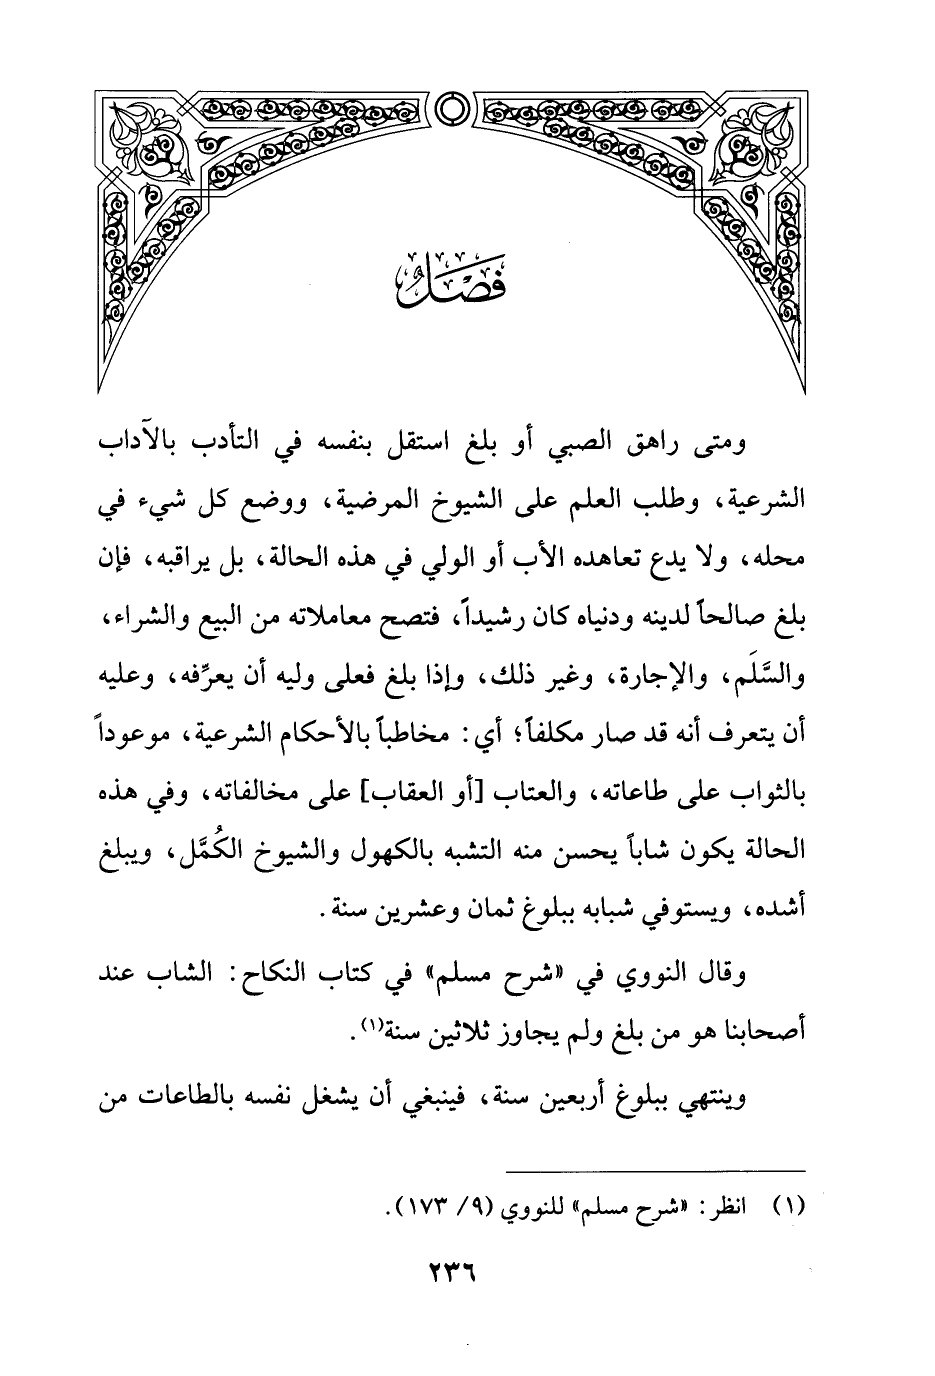 فَصْلٌ
ومتى راهق الصبي أو بلغ استقل بنفسه في التأدب بالآداب
الشرعية، وطلب العلم على الشيوخ المرضية، ووضع كل شيء في
محله، ولا يدع تعاهده الأب أو الولي في هذه الحالة، بل يراقبه، فإن
بلغ صالحاً لدينه ودنياه كان رشيداً، فتصح معاملاته من البيع والشراء،
والسَّلَم، والإجارة، وغير ذلك، وإذا بلغ فعلى وليه أن يعرِّفه، وعليه
أن يتعرف أنه قد صار مكلفاً؛ أي: مخاطباً بالأحكام الشرعية، موعوداً
بالثواب على طاعاته، والعتاب [أو العقاب] على مخالفاته، وفي هذه
الحالة يكون شاباً يحسن منه التشبه بالكهول والشيوخ الكُمَّل، ويبلغ
أشده، ويستوفي شبابه ببلوغ ثمان وعشرين سنة.
وقال النووي في «شرح مسلم» في كتاب النكاح: الشاب عند
أصحابنا هو من بلغ ولم يجاوز ثلاثين سنة(١).
وينتهي ببلوغ أربعين سنة، فينبغي أن يشغل نفسه بالطاعات من
(١) انظر: «شرح مسلم» للنووي (٩/ ١٧٣).
٢٣٦